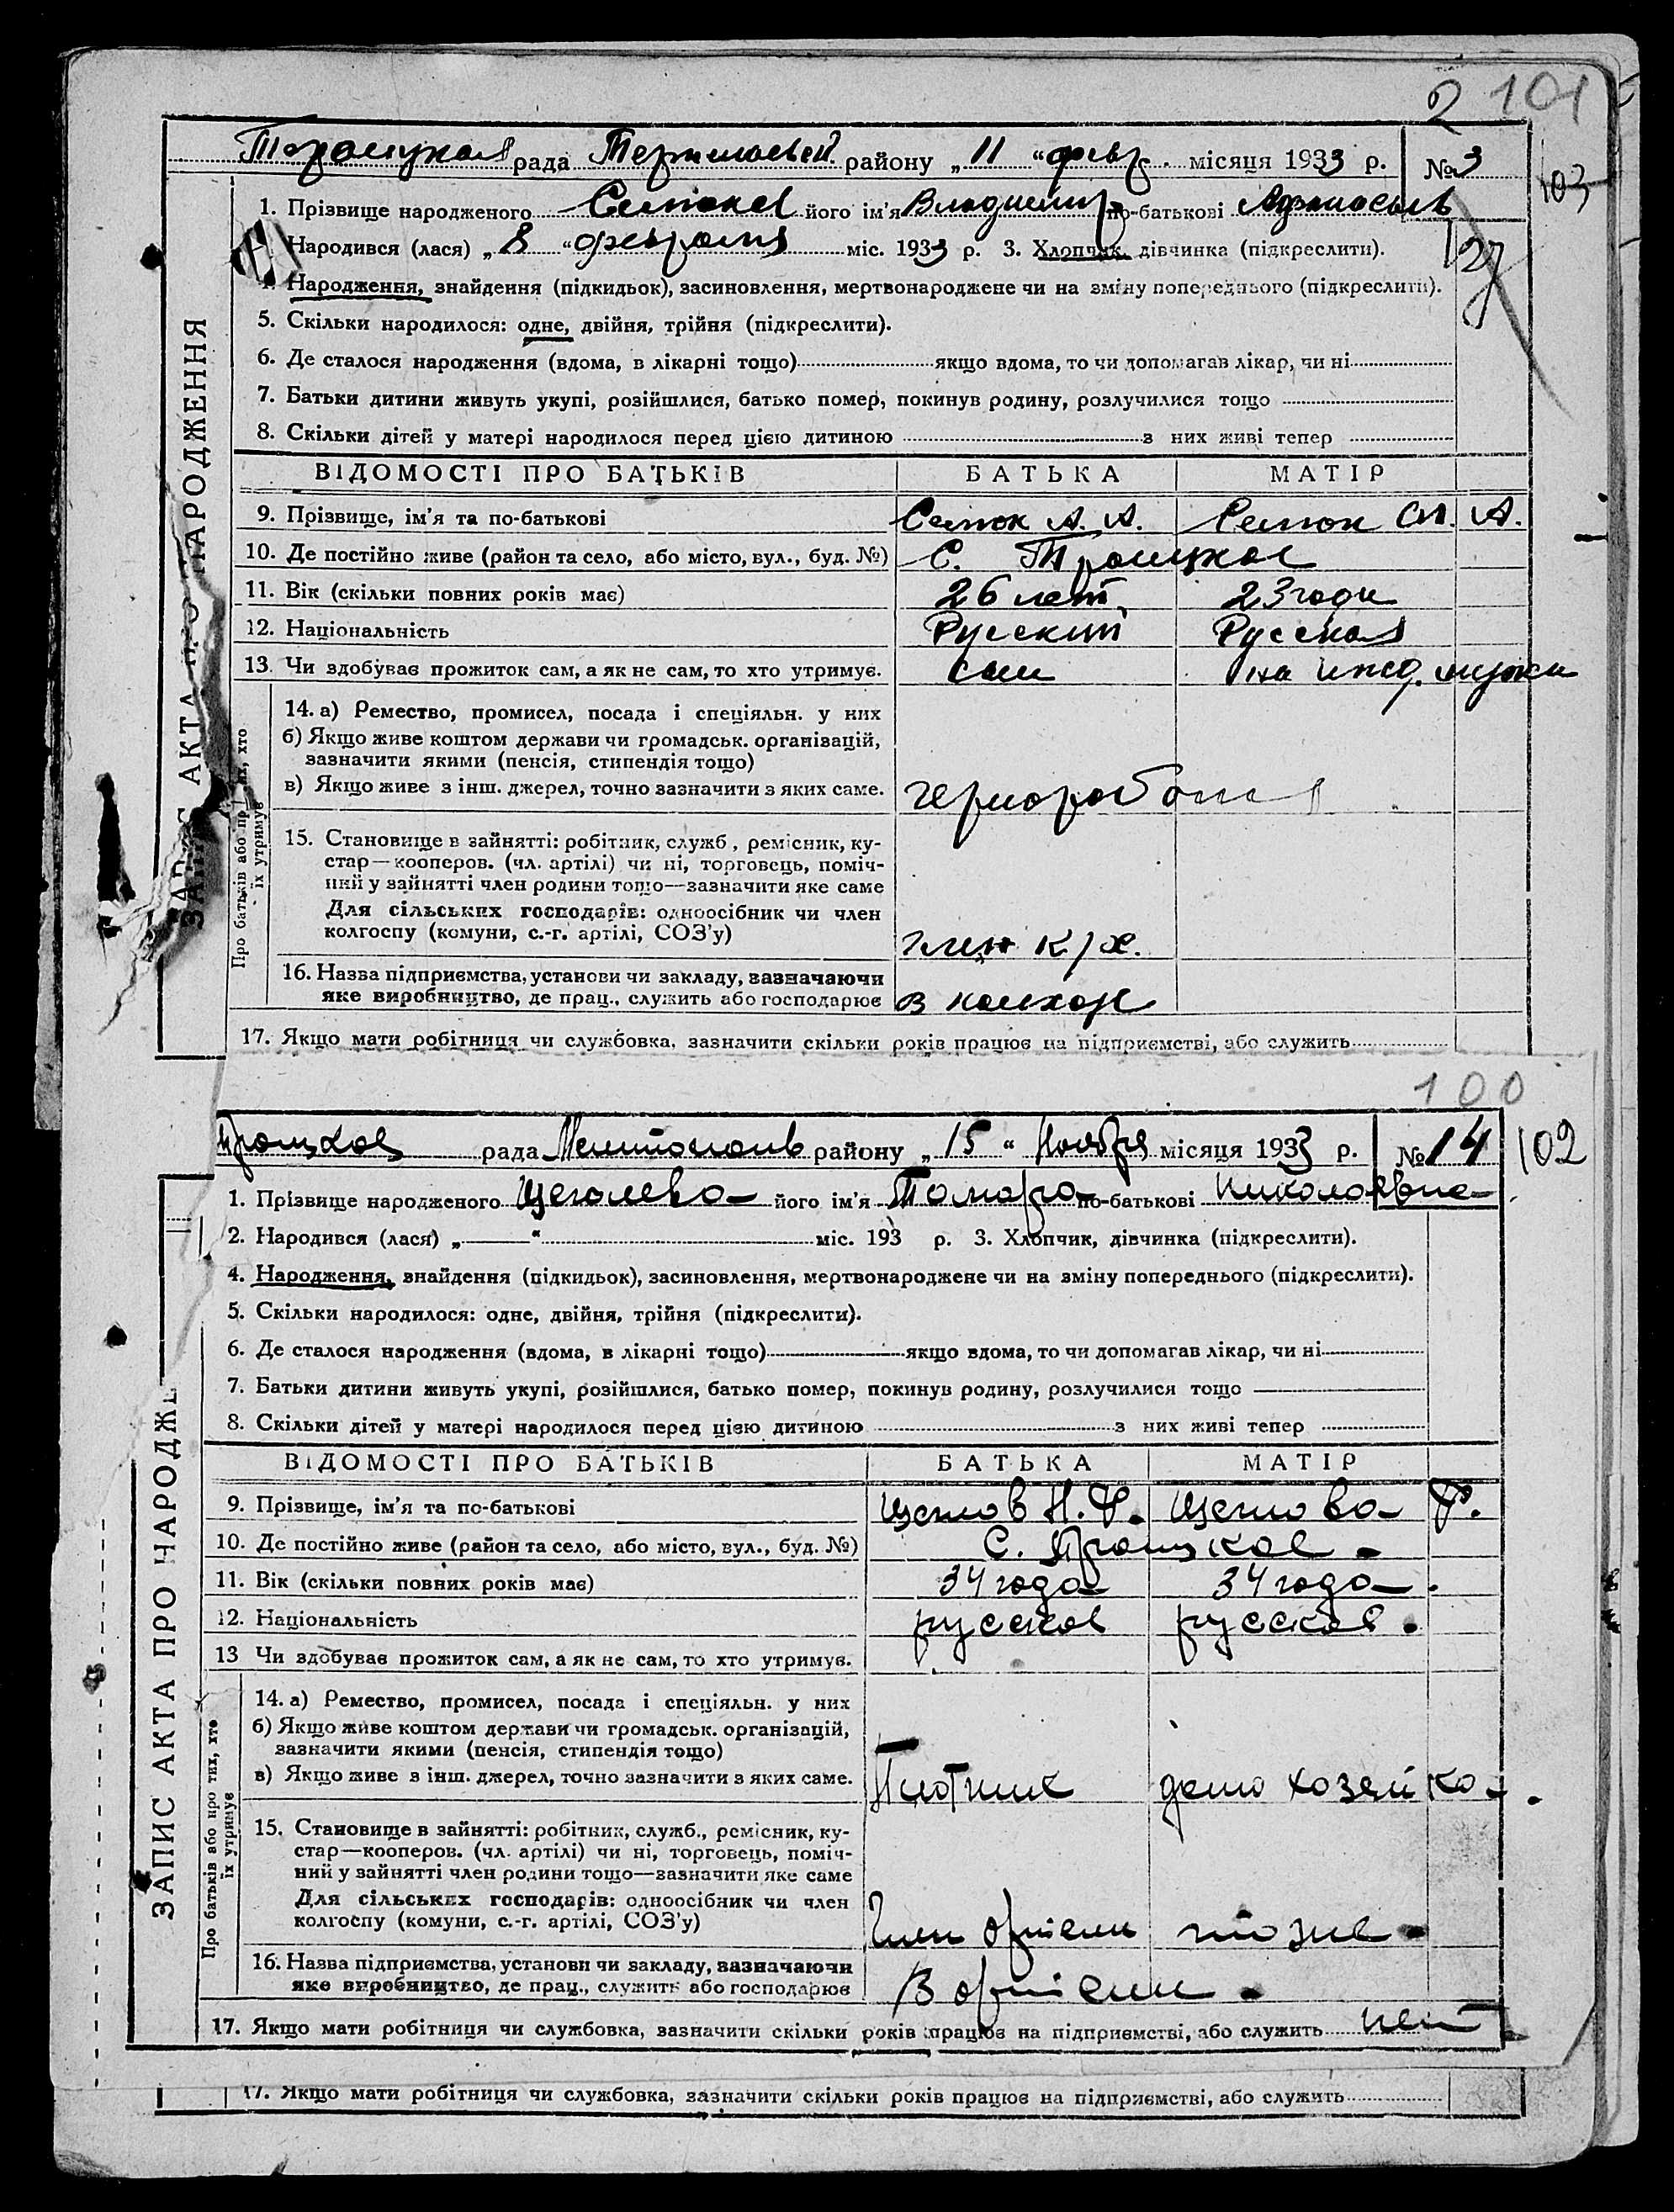 2 101
рада района „ 11 “ февр. місяця 1933 р. № 3
103
1. Прізвище народженого його ім'я Владимир по-батькові
Народився (лася) „ 8 “ февраля міс. 1933 р. 3. Хлопчик, дівчинка (підкреслити).
27
Народження, знайдення (підкидьок), засиновлення, мертвонароджене чи на зміну попереднього (підкреслити).
5. Скільки народилося: одне, двійня, трійня (підкреслити).
6. Де сталося народження (вдома, в лікарні тощо) якщо вдома, то чи допомагав лікар, чи ні
7. Батьки дитини живуть укупі, розійшлися, батько помер, покинув родину, розлучилися тощо
8. Скільки дітей у матері народилося перед цією дитиною з них живі тепер
ВІДОМОСТІ ПРО БАТЬКІВ БАТЬКА МАТІР
9. Прізвище, ім'я та по-батькові А. А. А.
10. Де постійно живе (район та село, або місто, вул., буд. №) С. Троицкое
11. Вік (скільки повних років має) 26 лет 23 года
12. Національність Русский Русская
13. Чи здобував прожиток сам, а як не сам, то хто утримує. сам на ижд. мужа
14. а) Ремество, промисел, посада і спеціяльн. у них
б) Якщо живе коштом держави чи громадськ. організацій,
зазначити якими (пенсія, стипендія тощо)
в) Якщо живе з інш. джерел, точно зазначити з яких саме.
15. Становище в зайнятті: робітник, служб., ремісник, ку-
стар—кооперов. (чл. артілі) чи ні, торговець, поміч-
ний у зайнятті член родини тощо—зазначити яке саме
Для сільських господарів: одноосібник чи член
колгоспу (комуни, с.-г. артілі, СОЗ'у) член к/х.
16. Назва підприємства, установи чи закладу, зазначаючи
яке виробництво, де прац., служить або господарює в колхозе
17. Якщо мати робітниця чи службовка, зазначити скільки років працює на підприємстві, або служить
ЗАПИС АКТА ПРО НАРОДЖЕННЯ
Про батьків або про тих, хто
їх утримує
100
Троицкое рада Мелитополь району „ 15 “ Ноября місяця 1933 р. № 14
102
1. Прізвище народженого Щеголева його ім'я Тамара по-батькові Николаевна
2. Народився (лася) „ “ міс. 193 р. 3. Хлопчик, дівчинка (підкреслити).
4. Народження, знайдення (підкидьок), засиновлення, мертвонароджене чи на зміну попереднього (підкреслити).
5. Скільки народилося: одне, двійня, трійня (підкреслити).
6. Де сталося народження (вдома, в лікарні тощо) якщо вдома, то чи допомагав лікар, чи ні
7. Батьки дитини живуть укупі, розійшлися, батько помер, покинув родину, розлучилися тощо
8. Скільки дітей у матері народилося перед цією дитиною з них живі тепер
ВІДОМОСТІ ПРО БАТЬКІВ БАТЬКА МАТІР
9. Прізвище, ім'я та по-батькові Н. Ф. Ф.
10. Де постійно живе (район та село, або місто, вул., буд. №) С. Троицкое
11. Вік (скільки повних років має) 34 года 34 года
12. Національність русское русское
13 Чи здобував прожиток сам, а як не сам, то хто утримує.
14. а) Ремество, промисел, посада і спеціяльн. у них
б) Якщо живе коштом держави чи громадськ. організацій,
зазначити якими (пенсія, стипендія тощо)
в) Якщо живе з інш. джерел, точно зазначити з яких саме. Плотник домо хозяйка
15. Становище в зайнятті: робітник, служб., ремісник, ку-
стар—кооперов. (чл. артілі) чи ні, торговець, поміч-
ний у зайнятті член родини тощо—зазначити яке саме
Для сільських господарів: одноосібник чи член
колгоспу (комуни, с.-г. артілі, СОЗ'у) Член артели тоже
16. Назва підприємства, установи чи закладу, зазначаючи
яке виробництво, де прац., служить або господарює В артели
17. Якщо мати робітниця чи службовка, зазначити скільки років працює на підприємстві, або служить нет
ЗАПИС АКТА ПРО НАРОДЖЕ
Про батьків або про тих, хто
їх утримує
17. Якщо мати робітниця чи службовка, зазначити скільки років працює на підприємстві, або служить